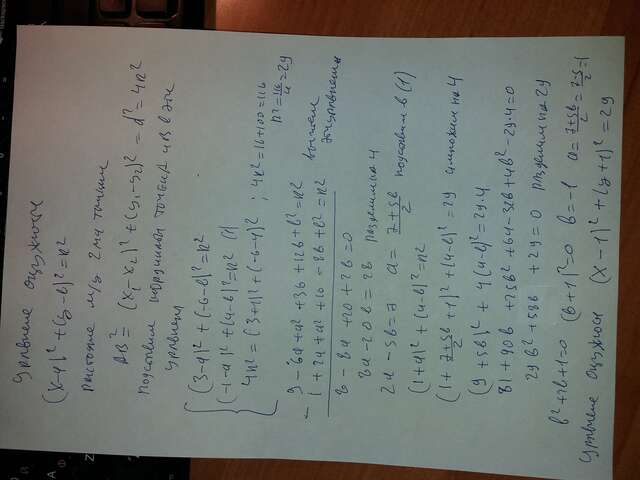 Уравнение окружности
(x-a)² + (y-b)² = R²
расстояние м/у 2мя точками
AB² = (x₁-x₂)² + (y₁-y₂)² = d² = 4R²
подставим координаты точек A и B в эти
уравнения
(3-a)² + (-6-b)² = R²
(-1-a)² + (4-b)² = R² (1)
4R² = (3+1)² + (-6-4)² ; 4R² = 16+100 = 116
R² = 116/4 = 29
9 - 6a + a² + 36 + 12b + b² = R²
- 1 + 2a + a² + 16 - 8b + b² = R² вычтем
эти уравнения
8 - 8a + 20 + 2b = 0
8a - 20b = 28 разделим на 4
2a - 5b = 7 a = (7+5b)/2 подставим в (1)
(1+a)² + (4-b)² = R²
(1 + (7+5b)/2 + 1)² + (4-b)² = 29 умножим на 4
(9 + 5b)² + 4(4-b)² = 29·4
81 + 90b + 25b² + 64 - 32b + 4b² - 29·4 = 0
29b² + 58b + 29 = 0 разделим на 29
b² + 2b + 1 = 0 (b+1)² = 0 b = -1 a = (7+5b)/2 = (7-5)/2 = 1
Уравнение окружности (x-1)² + (y+1)² = 29